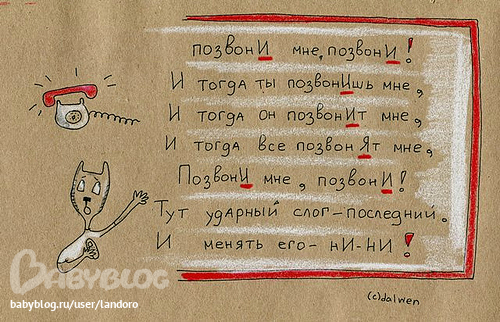 позвонИ мне, позвонИ!
И тогда ты позвонИшь мне,
И тогда он позвонИт мне,
И тогда все позвонЯт мне,
ПозвонИ мне, позвонИ!
Тут ударный слог-последний,
И менять его- нИ-НИ!
(c)dalwen
BABYBLOG
babyblog.ru/user/landoro